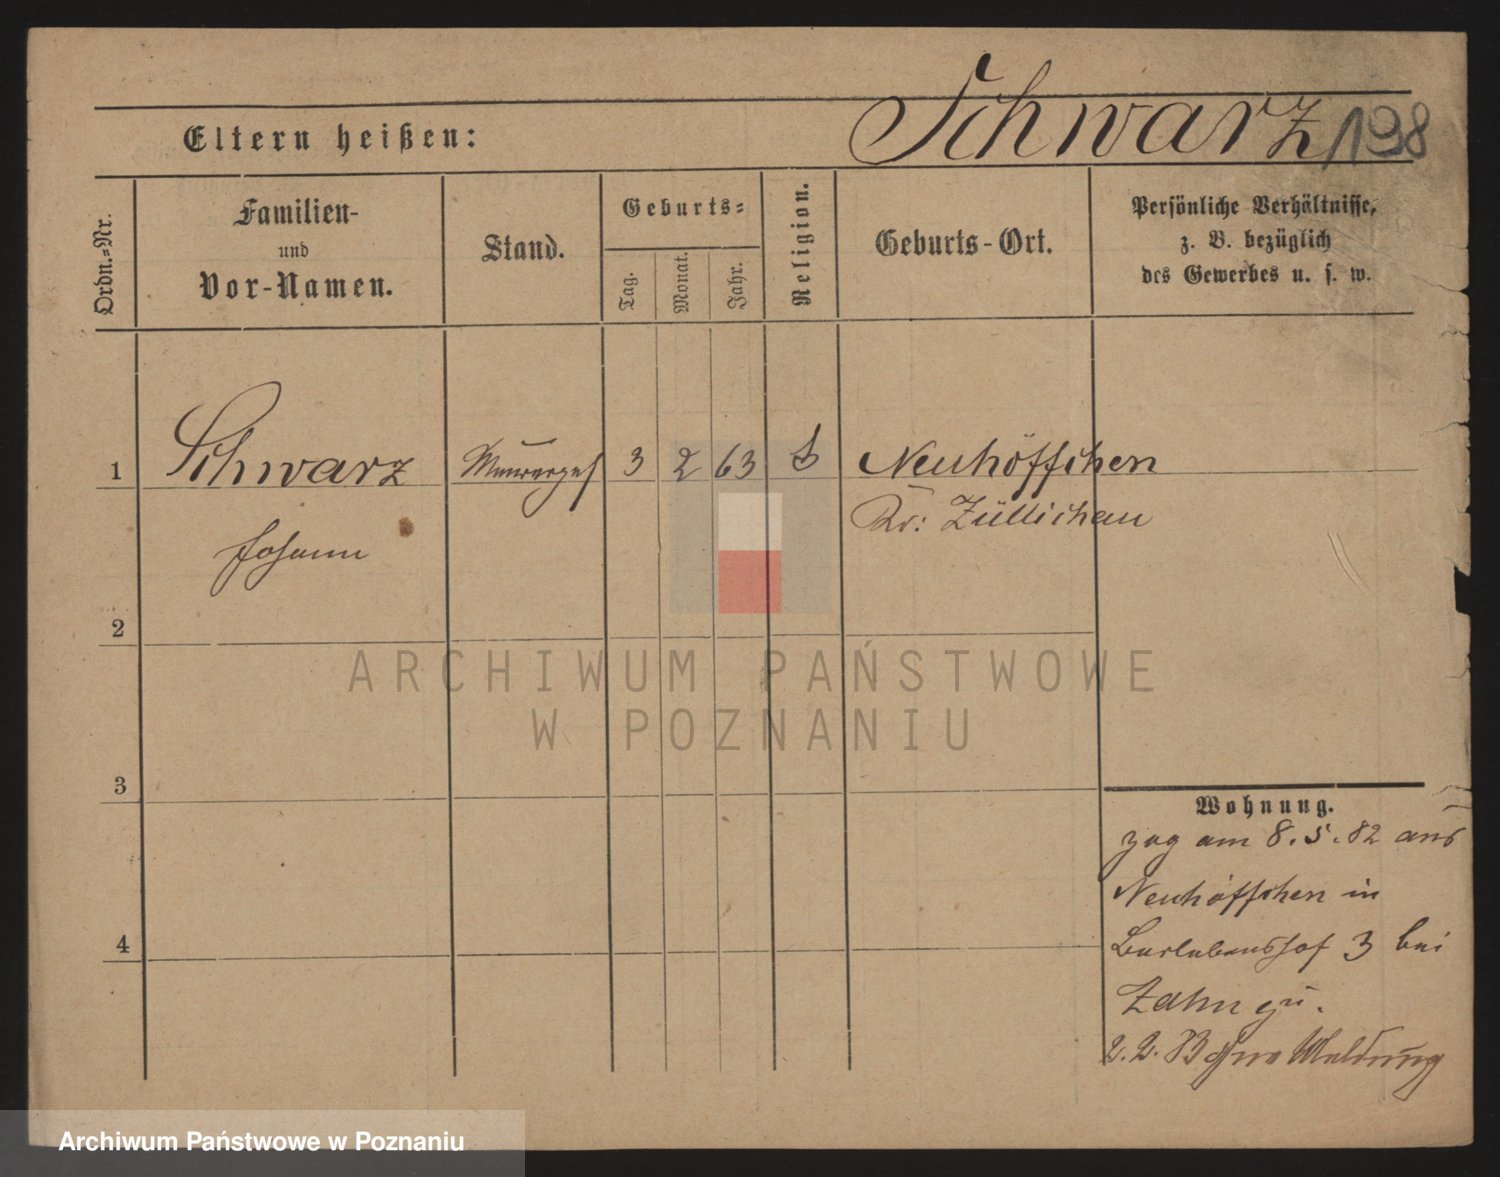 Schwarz 198
Eltern heißen:
Ordn.-Nr.
Familien-
und
Vor-Namen.
Stand.
Geburts-
Tag.
Monat.
Jahr.
Religion.
Geburts-Ort.
Persönliche Verhältnisse,
z. B. bezüglich
des Gewerbes u. s. w.
1 Schwarz Maurerges 3 2 63 Neuhöffchen
Kr: Züllichau
Johann
2
3
4
Wohnung.
zog am 8.5.82 aus
Neuhöffchen in
Berlebenshof 3 bei
Zahn zu.
2.2.83 ohne Meldung
ARCHIWUM PAŃSTWOWE
W POZNANIU
Archiwum Państwowe w Poznaniu